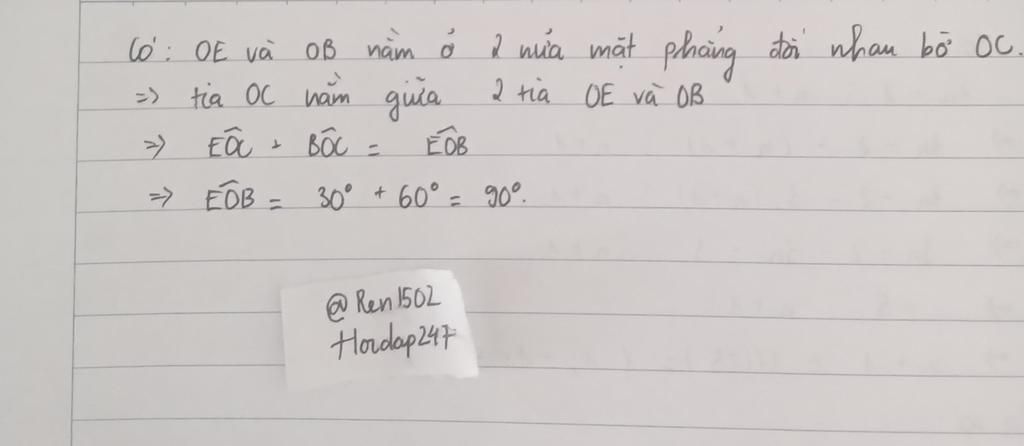 Có: OE và OB nằm ở 2 nửa mặt phẳng đối nhau bờ OC.
=> tia OC nằm giữa 2 tia OE và OB
=> EÔC + BÔC = EÔB
=> EÔB = 30° + 60° = 90°.
@Ren1502
Hoidap247